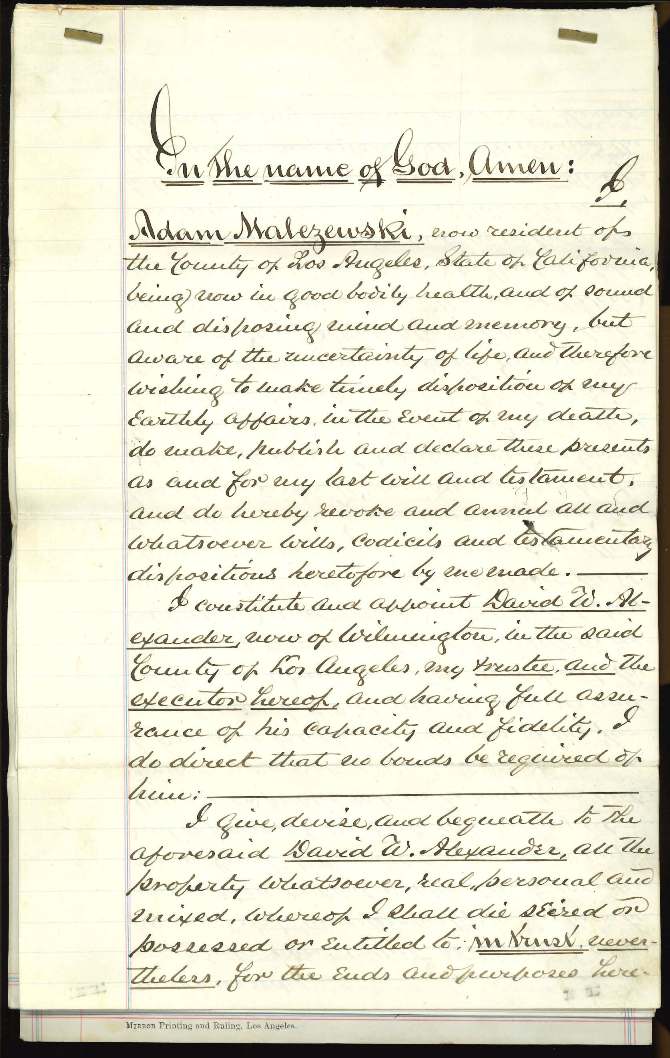 In the name of God, Amen:
I,
Adam Malezewski, now resident of
the County of Los Angeles, State of California,
being now in good bodily health, and of sound
and disposing mind and memory, but
aware of the uncertainty of life, and therefore
wishing to make timely disposition of my
Earthly affairs, in the Event of my death,
do make, publish and declare these presents
as and for my last will and testament,
and do hereby revoke and annul all and
whatsoever wills, codicils and testamentary
dispositions heretofore by me made.
I constitute and appoint David W. Al-
exander, now of Wilmington, in the said
County of Los Angeles, my trustee, and the
executor hereof, and having full assu-
rance of his capacity and fidelity, I
do direct that no bonds be required of
him:
I give, devise, and bequeath to the
aforesaid David W. Alexander, all the
property whatsoever, real, personal and
mixed, whereof I shall die seized or
possessed or Entitled to; in trust, never-
theless, for the Ends and purposes here-
MIRROR Printing and Ruling, Los Angeles.